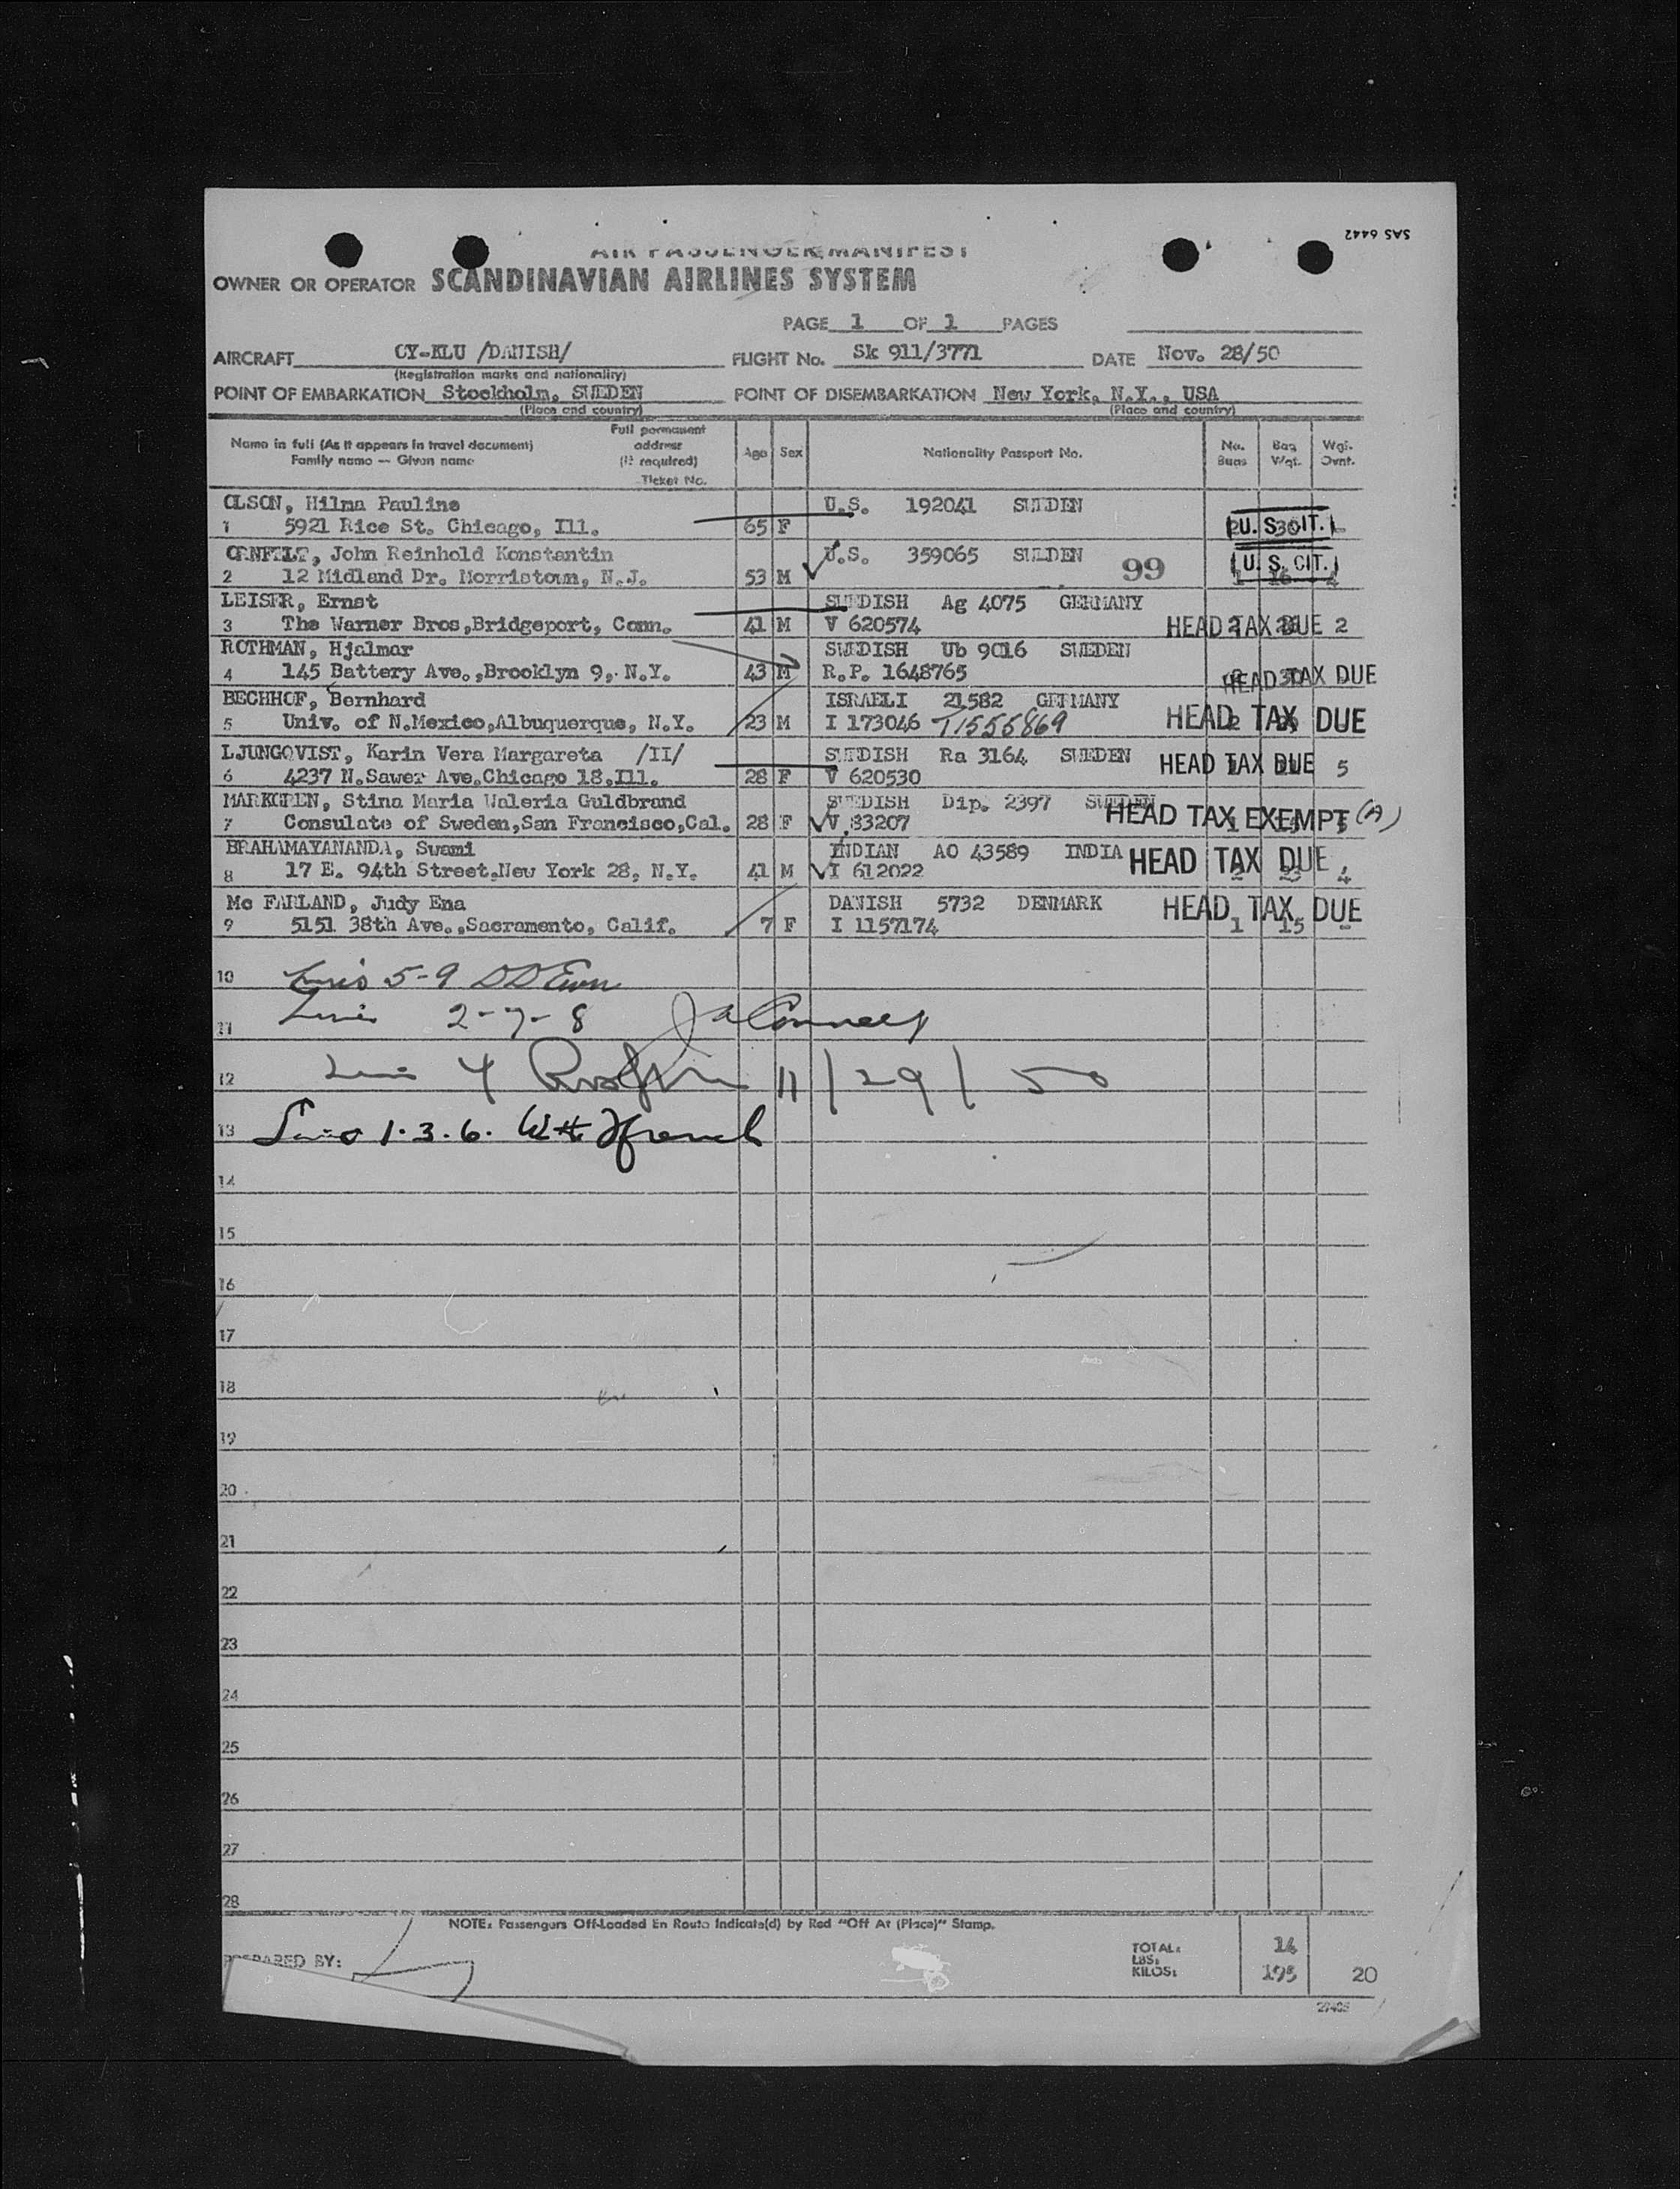 SAS 6442
AIR PASSENGER MANIFEST
OWNER OR OPERATOR SCANDINAVIAN AIRLINES SYSTEM
PAGE 1 OF 1 PAGES
AIRCRAFT OY-KLU /DANISH/ FLIGHT No. Sk 911/3771 DATE Nov. 28/50
(Registration marks and nationality)
POINT OF EMBARKATION Stockholm, SWEDEN POINT OF DISEMBARKATION New York, N.Y., USA
(Place and country) (Place and country)
Name in full (As it appears in travel document) Family name — Given name Full permanent address (If required) Ticket No. Age Sex Nationality Passport No. No. Bags Bag Wgt. Wgt. Ovnt.
OLSON, Hilma Pauline U.S. 192041 SWEDEN
1 5921 Rice St. Chicago, Ill. 65 F U. S. CIT.
ORNFELT, John Reinhold Konstantin U.S. 359065 SWEDEN 99
2 12 Midland Dr. Morristown, N.J. 53 M U. S. CIT. 1 16
LEISER, Ernst SWEDISH Ag 4075 GERMANY
3 The Warner Bros,Bridgeport, Conn. 41 M V 620574 HEAD TAX DUE 2
ROTHMAN, Hjalmar SWEDISH Ub 9016 SWEDEN
4 145 Battery Ave.,Brooklyn 9, N.Y. 43 M R.P. 1648765 HEAD TAX DUE
BECHHOF, Bernhard ISRAELI 21582 GERMANY
5 Univ. of N.Mexico,Albuquerque, N.Y. 23 M I 173046 T1555869 HEAD TAX DUE
LJUNGQVIST, Karin Vera Margareta /II/ SWEDISH Ra 3164 SWEDEN
6 4237 N.Sawer Ave.Chicago 18.Ill. 28 F V 620530 HEAD TAX DUE 5
MARKGREN, Stina Maria Waleria Guldbrand SWEDISH Dip. 2397 SWEDEN
7 Consulate of Sweden,San Francisco,Cal. 28 F V 83207 HEAD TAX EXEMPT (A)
BRAHAMAYANANDA, Swami INDIAN AO 43589 INDIA
8 17 E. 94th Street.New York 28, N.Y. 41 M I 612022 HEAD TAX DUE 2 23 4
Mc FARLAND, Judy Ena DANISH 5732 DENMARK
9 5151 38th Ave.,Sacramento, Calif. 7 F I 1157174 HEAD TAX DUE 1 15 -
10 5-9
11 2-7-8
12 4 11/29/50
13 1.3.6. French
14
15
16
17
18
19
20
21
22
23
24
25
26
27
28
NOTE: Passengers Off-Loaded En Route Indicate(d) by Red "Off At (Place)" Stamp.
PREPARED BY:
TOTAL: 14
LBS:
KILOS: 195 20